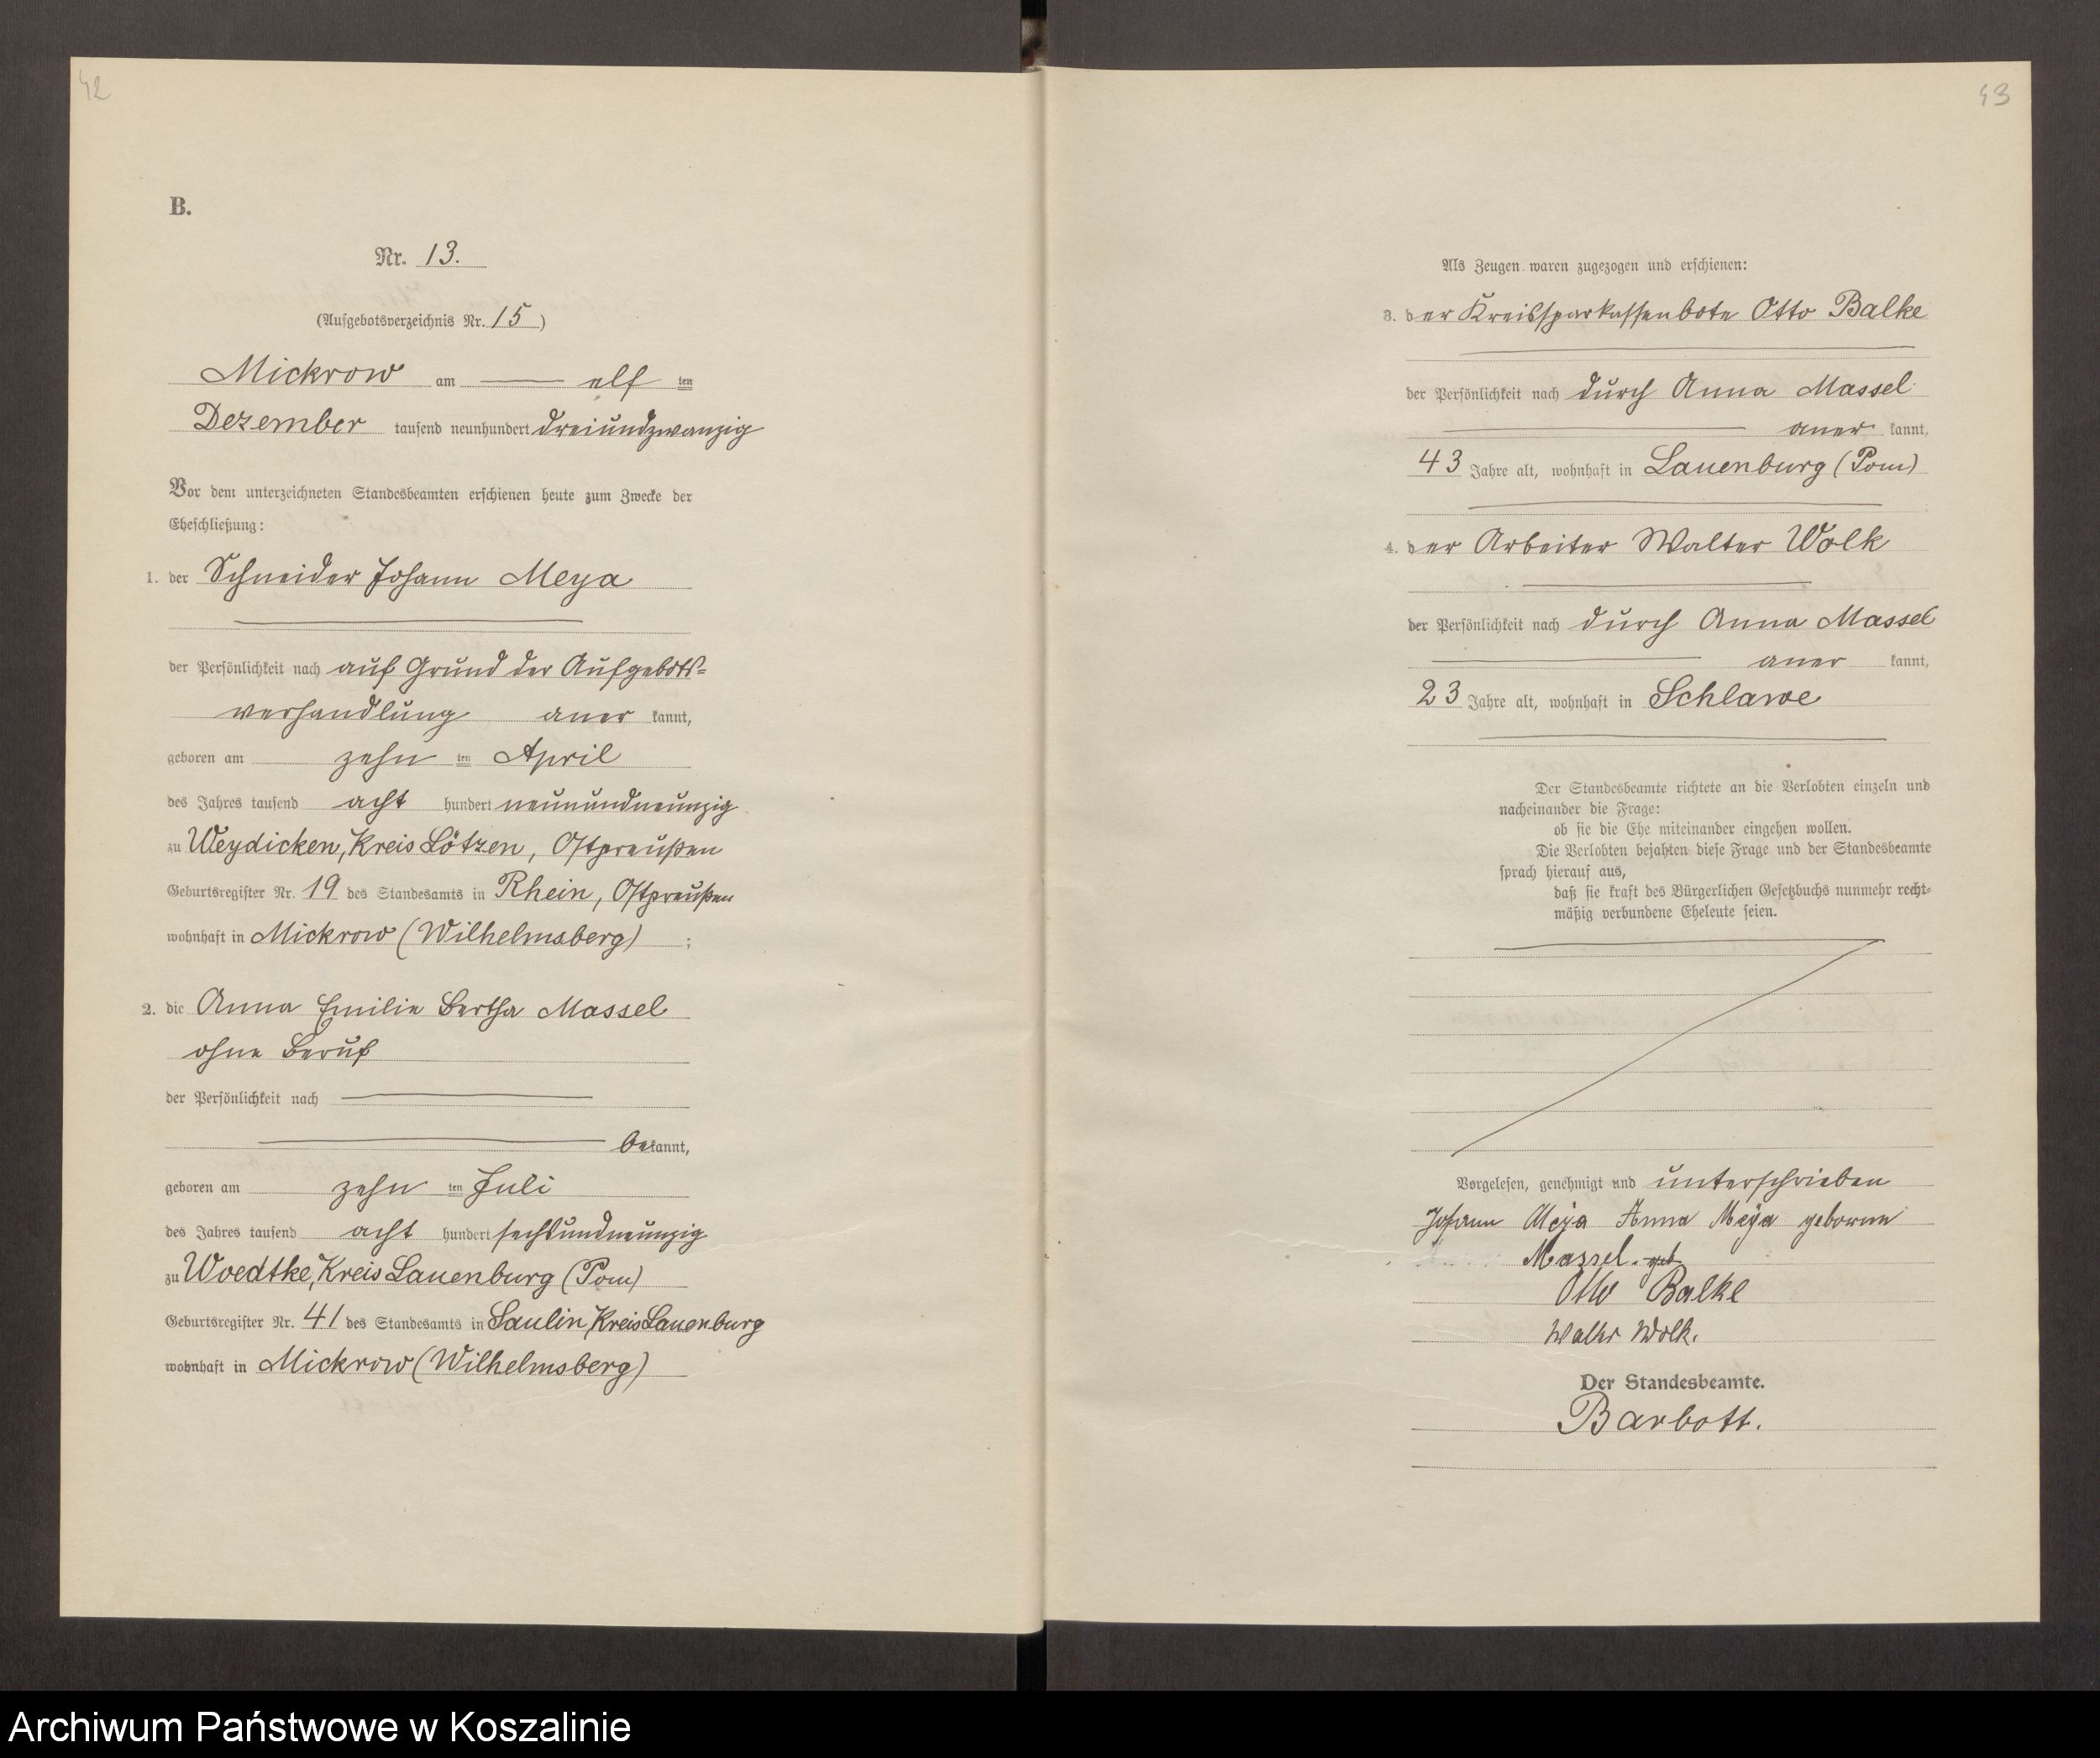 42
B.
Nr. 13.
(Aufgebotsverzeichnis Nr. 15)
Mickrow am elf ten
Dezember tausend neunhundert dreiundzwanzig
Vor dem unterzeichneten Standesbeamten erschienen heute zum Zwecke der
Eheschließung:
1. der Schneider Johann Meya
der Persönlichkeit nach auf Grund der Aufgebots=
verhandlung aner kannt,
geboren am zehn ten April
des Jahres tausend acht hundert neunundneunzig
zu Weydicken, Kreis Lötzen, Ostpreußen
Geburtsregister Nr. 19 des Standesamts in Rhein, Ostpreußen
wohnhaft in Mickrow (Wilhelmsberg) ;
2. die Anna Emilie Bertha Massel
ohne Beruf
der Persönlichkeit nach
bekannt,
geboren am zehn ten Juli
des Jahres tausend acht hundert sechsundneunzig
zu Woedtke, Kreis Lauenburg (Pom)
Geburtsregister Nr. 41 des Standesamts in Saulin, Kreis Lauenburg
wohnhaft in Mickrow (Wilhelmsberg)
43
Als Zeugen waren zugezogen und erschienen:
3. der Kreissparkassenbote Otto Balke
der Persönlichkeit nach durch Anna Massel
aner kannt,
43 Jahre alt, wohnhaft in Lauenburg (Pom)
4. der Arbeiter Walter Wolk
der Persönlichkeit nach durch Anna Massel
aner kannt,
23 Jahre alt, wohnhaft in Schlawe
Der Standesbeamte richtete an die Verlobten einzeln und
nacheinander die Frage:
ob sie die Ehe miteinander eingehen wollen.
Die Verlobten bejahten diese Frage und der Standesbeamte
sprach hierauf aus,
daß sie kraft des Bürgerlichen Gesetzbuchs nunmehr recht=
mäßig verbundene Eheleute seien.
Vorgelesen, genehmigt und unterschrieben
Johann Meya Anna Meya geborene
Massel. geb.
Otto Balke
Walter Wolk.
Der Standesbeamte.
Barbott.
Archiwum Państwowe w Koszalinie